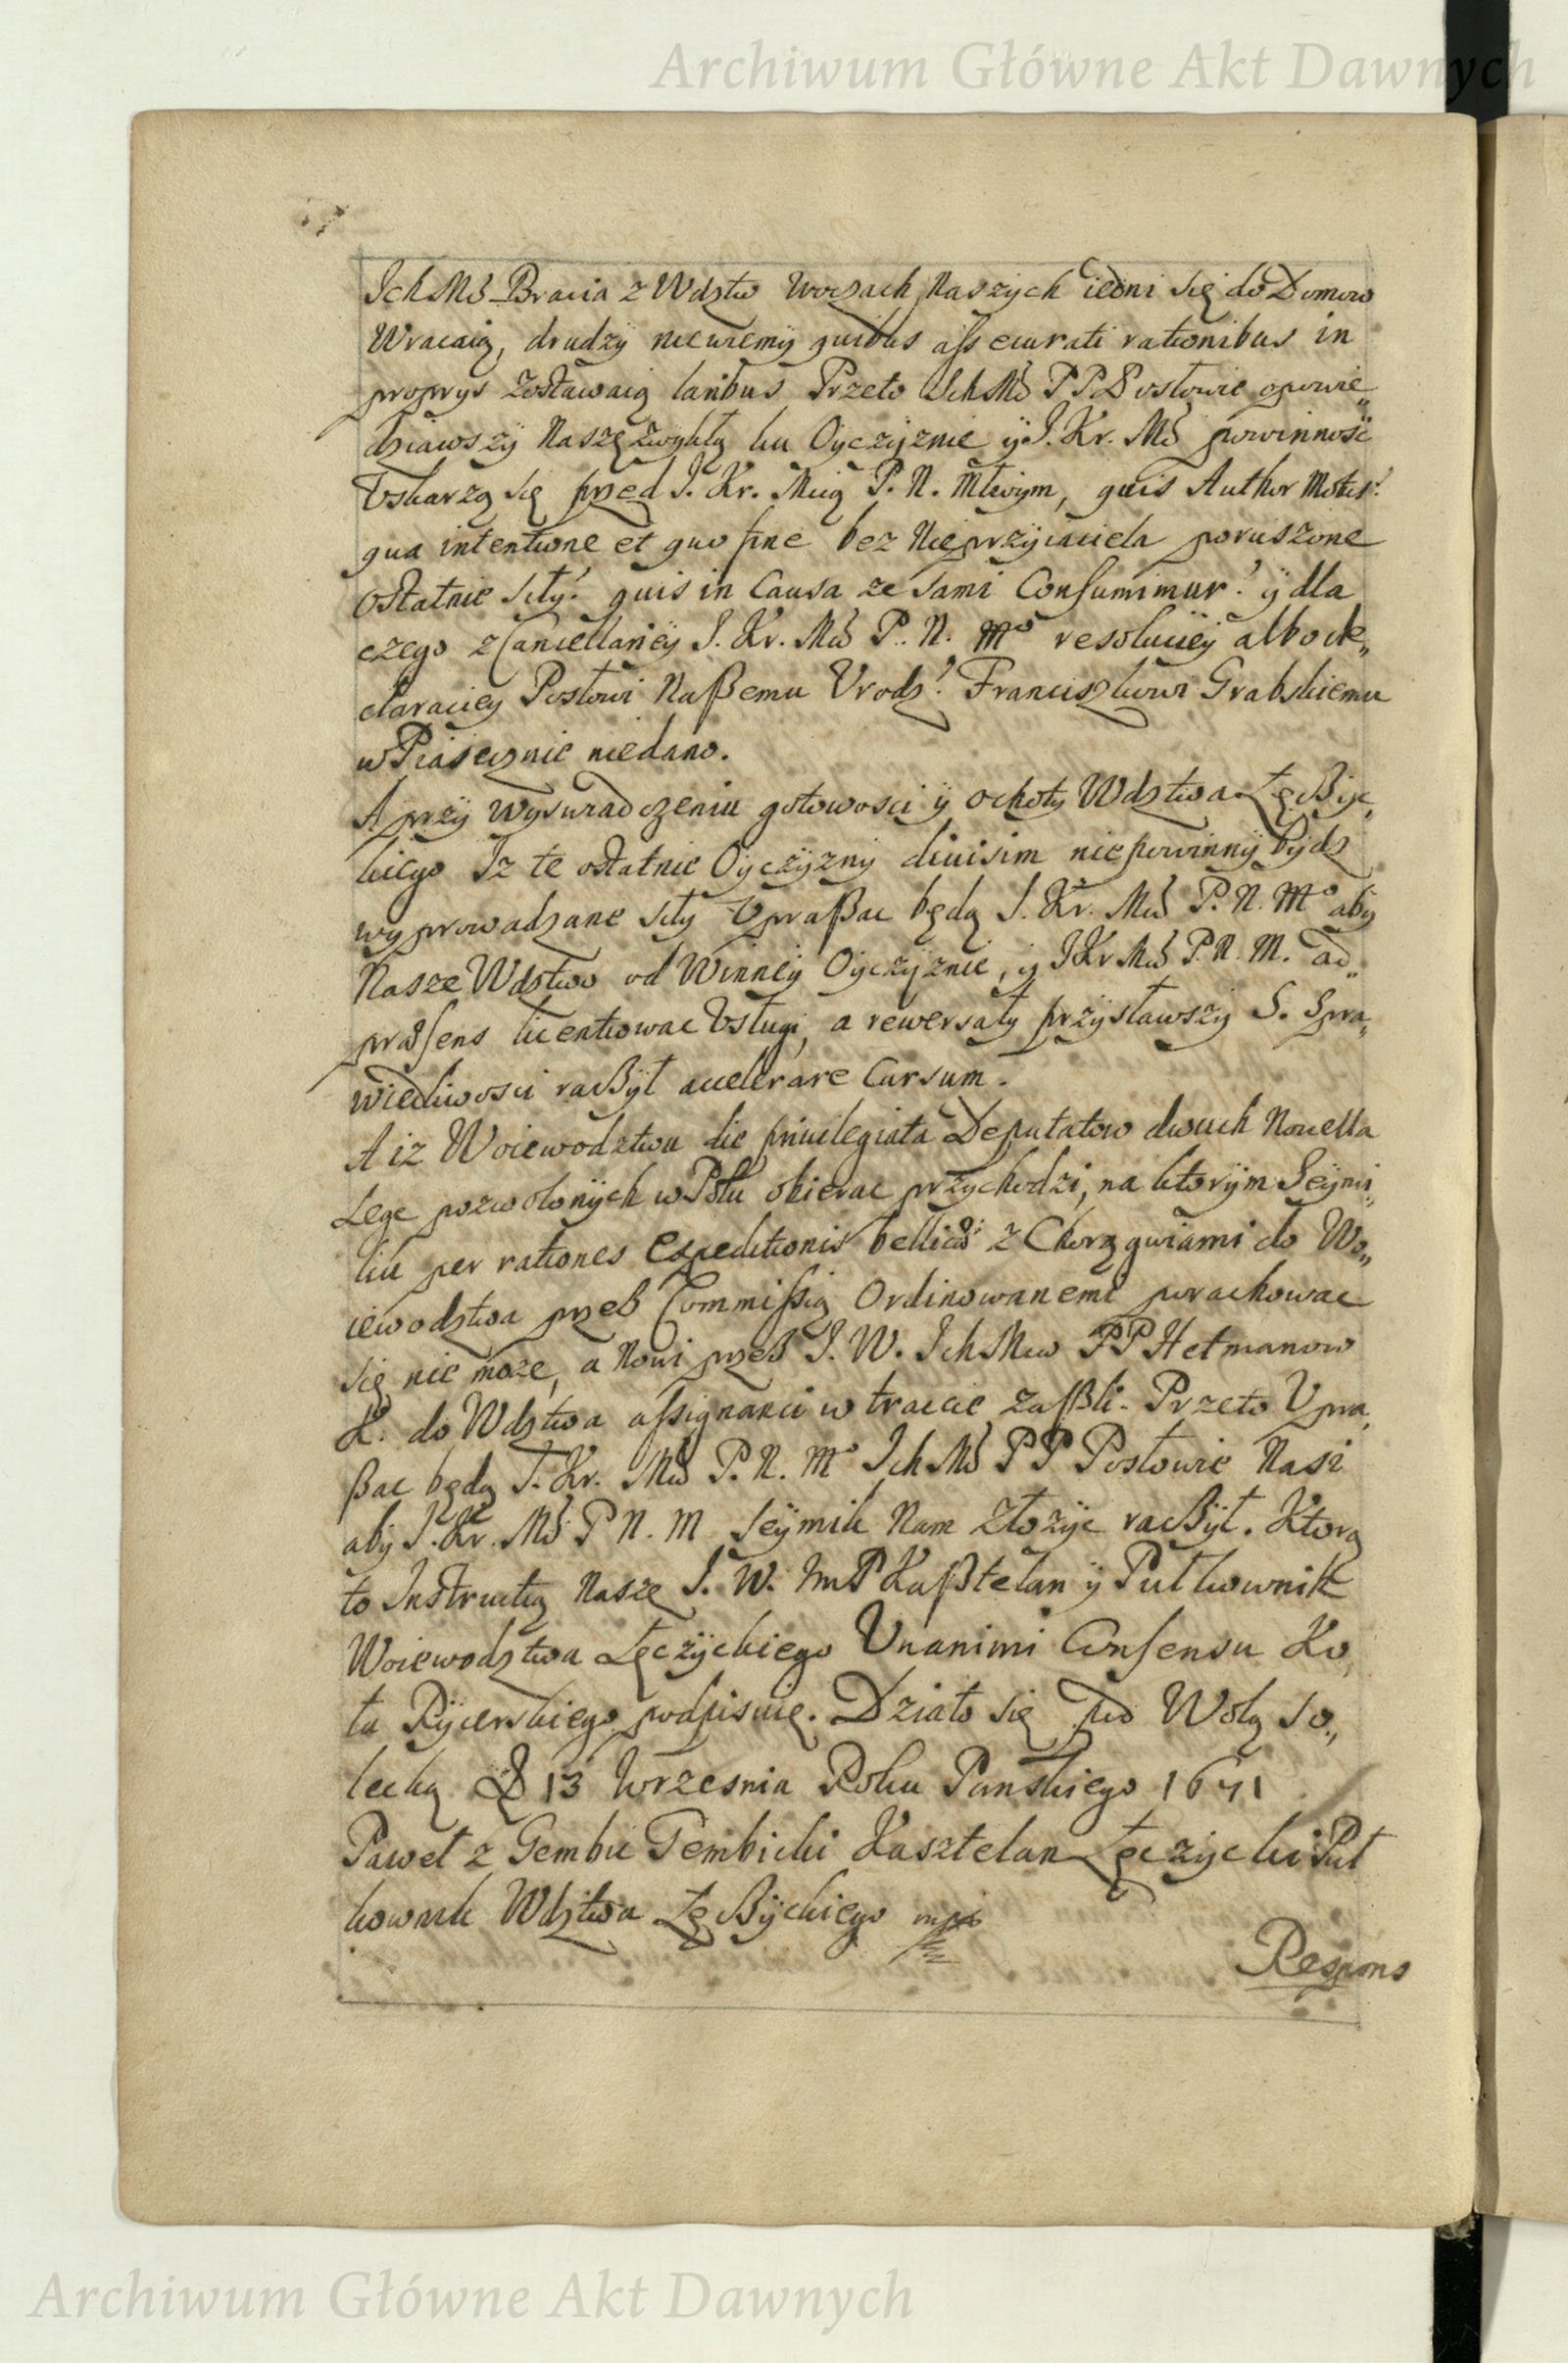 Archiwum Główne Akt Dawnych
Ich Mś Bracia z Wdztw w oczach Naszych iedni się do Domow
Wracaią, drudzÿ niewiemÿ quibus assecurati rationibus in
proprys zostawaią laribus Przeto Ich Mś P P Posłowie opowie„
dziawszÿ Naszę zwykłą ku Oyczÿznie ÿ J. Kr. Mś powinność
Vskarzą się przed J. Kr. Mcią P. N. Młciwym, quis Author Motus?
qua intentione et quo fine bez Nieprzÿiaciela poruszone
ostatnie siły? quis in Causa ze sami Consumimur? ÿ dla
czego z Cancellarieÿ J. Kr. Mći P. N. Mº resolucieÿ albo de„
claracieÿ Posłowi Naßemu Vrodz: Franciszkowi Grabskiemu
w Piasecznie niedano.
A przÿ wyswiadczeniu gotowosci ÿ ochoty Wdztwa Łęcßyc„
kiego Iz te ostatnie Oyczÿzny divisim niepowinnÿ bydz
wyprowadzane siły Vpraßac będą J. Kr. Mći P. N. Mº aby
Nasze Wdztwo od Winneÿ Oyczÿznie, ÿ J Kr Mći P. N. M. ad„
præsens licentiowac Vsługi, a rewersały przÿsławszÿ S. Spra„
wiedliwosci racßÿł accelerare Cursum.
A iz Woiewodztwu die privilegiata Deputatow dwuch Novella
Lege pozwolonÿch w Polu obierac przÿchodzi, na ktorÿm Seÿmi„
ku per rationes expeditionis bellicæ z Chorągwiami do Wo„
iewodztwa przeß Commissią Ordinowanemi porachowac
się nie moze, a Nowi przeß J. W. Ich Mciow PP Hetmanow
K. do Wdztwa assignanci w trakcie zaßli. Przeto Vpra„
ßac będą J. Kr. Mći P. N. Mº Ich Mś P P Posłowie Nasi
aby J. Kr. Mś P N. M Seÿmik Nam złozÿc racßÿł. Ktorą
to Instructią Nasze J. W. Jm P Kaßtelan ÿ Pułkownik
Woiewodztwa Łęczÿckiego Vnanimi Consensu Ko„
ła Rÿcerskiego podpisuie. Działo się pod Wolą so„
lecką D 13 Wrzesnia Roku Panskiego 1671
Paweł z Gembic Gembicki Kasztelan Łęczycki Puł
kownik Wdztwa Łęcßÿckiego mpp
Respons
Archiwum Główne Akt Dawnych